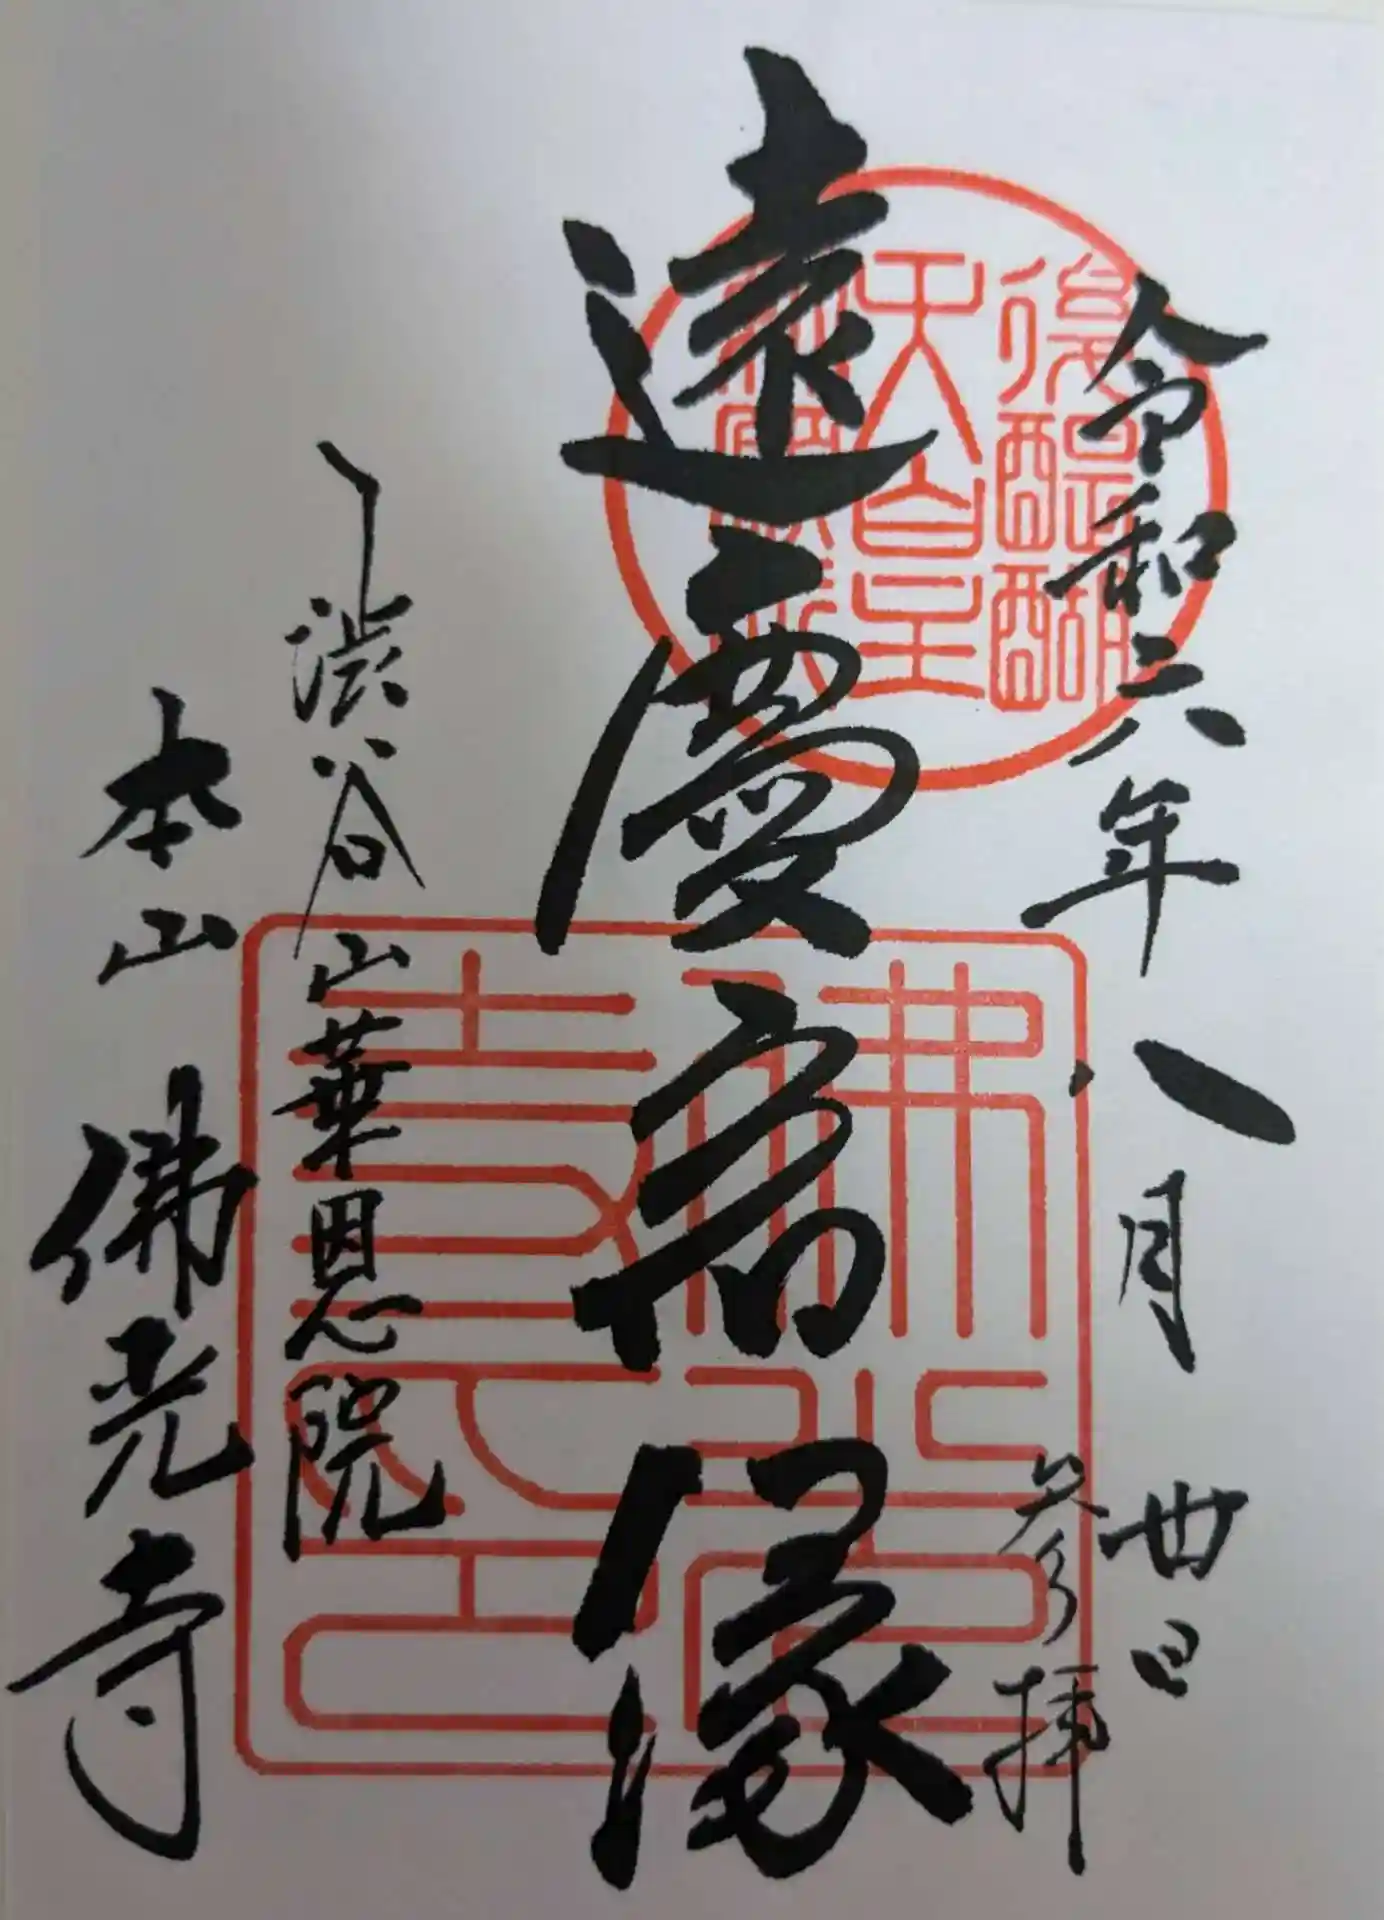 令和六年八月廿日
参拝
遠慶宿縁
渋谷山華恩院
本山 佛光寺
後醍醐
天皇
佛光
寺印